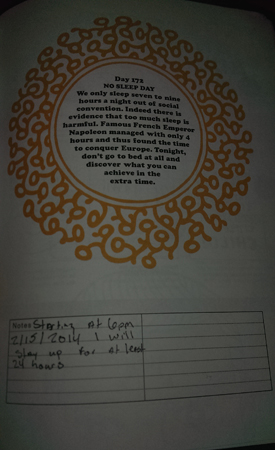 Day 172
NO SLEEP DAY
We only sleep seven to nine
hours a night out of social
convention. Indeed there is
evidence that too much sleep is
harmful. Famous French Emperor
Napoleon managed with only 4
hours and thus found the time
to conquer Europe. Tonight,
don't go to bed at all and
discover what you can
achieve in the
extra time.
Notes Starting At 6pm
2/15/2014 I will
stay up for at least
24 hours